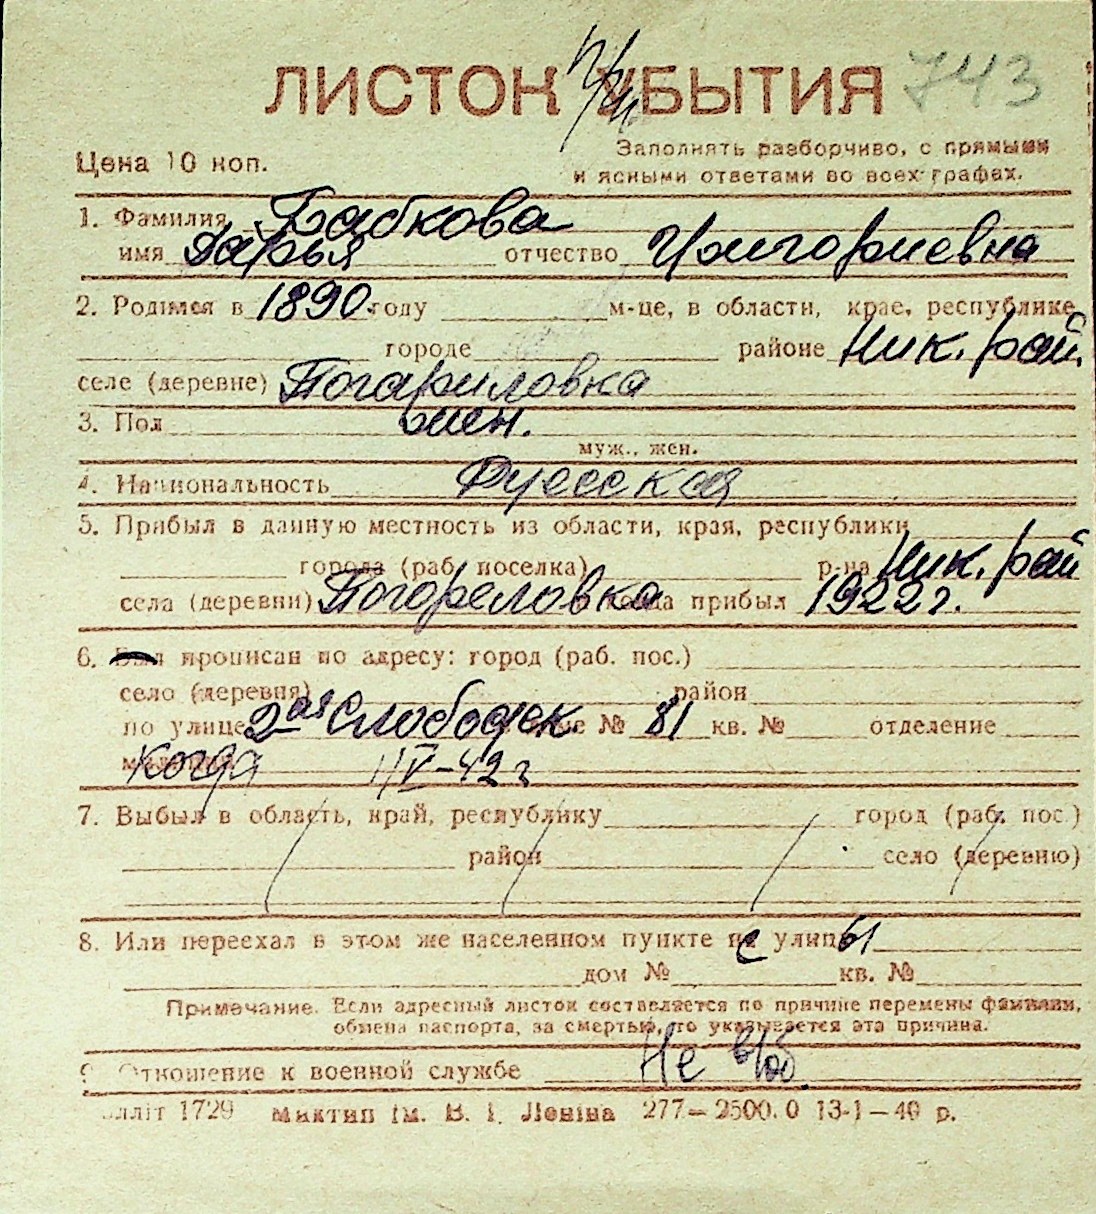 ЛИСТОК УБЫТИЯ 743
Цена 10 коп.
Заполнять разборчиво, с прямыми
и ясными ответами во всех графах.
1. Фамилия Бабкова
имя Дарья отчество Григориевна
2. Родился в 1890 году м-це, в области, крае, республике
городе районе Ник. рай.
селе (деревне) Погариловка
3. Пол жен.
муж., жен.
4. Национальность Русская
5. Прибыл в данную местность из области, края, республики
города (раб. поселка) р-на Ник. рай
села (деревни) Погореловка когда прибыл 1922 г.
6. Был прописан по адресу: город (раб. пос.)
село (деревня) район
по улице 2ая Слободск. № 81 кв. № отделение
когда 1/V-42 г
7. Выбыл в область, край, республику город (раб. пос.)
район село (деревню)
8. Или переехал в этом же населенном пункте с улицы
дом № кв. №
Примечание. Если адресный листок составляется по причине перемены фамилии,
обмена паспорта, за смертью, то указывается эта причина.
9. Отношение к военной службе Не в/об.
1729 Миктип ім. В. І. Леніна 277—2500.0 13-1—40 р.